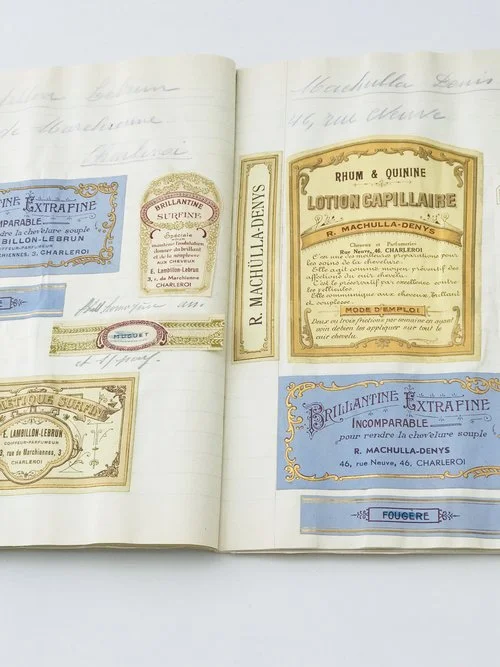 Lebrun
de Marchienne
Charleroi
EXTRAFINE
dre la chevelure souple
BILLON-LEBRUN
COIFFEUR-PARFUMEUR
3, CHARLEROI
BRILLANTINE
SURFINE
Spéciale
E. Lambillon-Lebrun
3, r. de Marchienne
CHARLEROI
MUGUET
SURFINE
E. LAMBILLON-LEBRUN
COIFFEUR-PARFUMEUR
3, rue de Marchiennes, 3
CHARLEROI
Machulla Denis
46, rue Neuve
R. MACHÜLLA-DENYS
RHUM & QUININE
LOTION CAPILLAIRE
R. MACHULLA-DENYS
Cheveux et Parfumeries
Rue Neuve, 46, CHARLEROI
C'est une des meilleures préparations pour
les soins de la chevelure.
Elle agit comme moyen préventif des
affections du cuir chevelu.
C'est le préservatif par excellence contre
les pellicules.
Elle communique aux cheveux, brillant
et souplesse.
MODE D'EMPLOI
Deux ou trois frictions par semaine en ayant
soin de bien les appliquer sur tout le
cuir chevelu.
BRILLANTINE EXTRAFINE
INCOMPARABLE
pour rendre la chevelure souple
R. MACHULLA-DENYS
46, rue Neuve, 46, CHARLEROI
FOUGÈRE